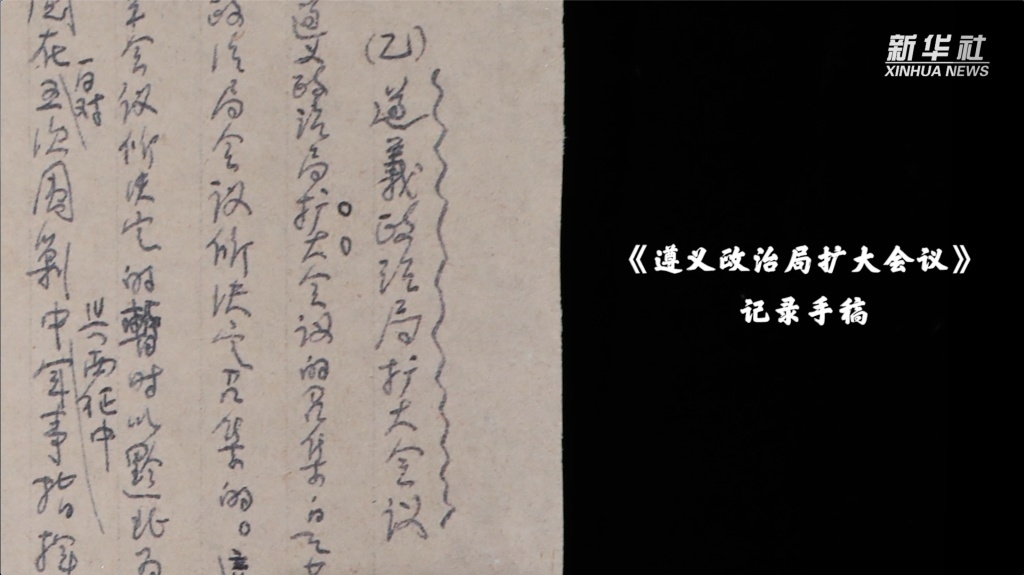 新华社
XINHUA NEWS
《遵义政治局扩大会议》
记录手稿
(乙)遵義政治局扩大会议
遵义政治局扩大会议的召集
政治局会议所决定召集的。
会议所决定的暂时以黔北为
在五次围剿中军事指揮
西征中